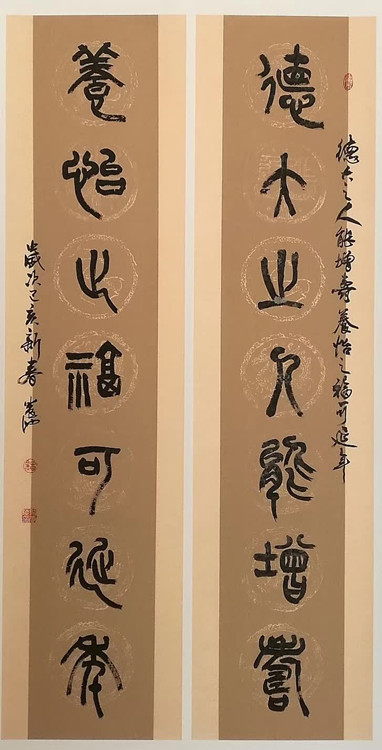 德大之人能增寿
德大之人能增寿養怡之福可延年
養怡之福可延年
歲次己亥新春